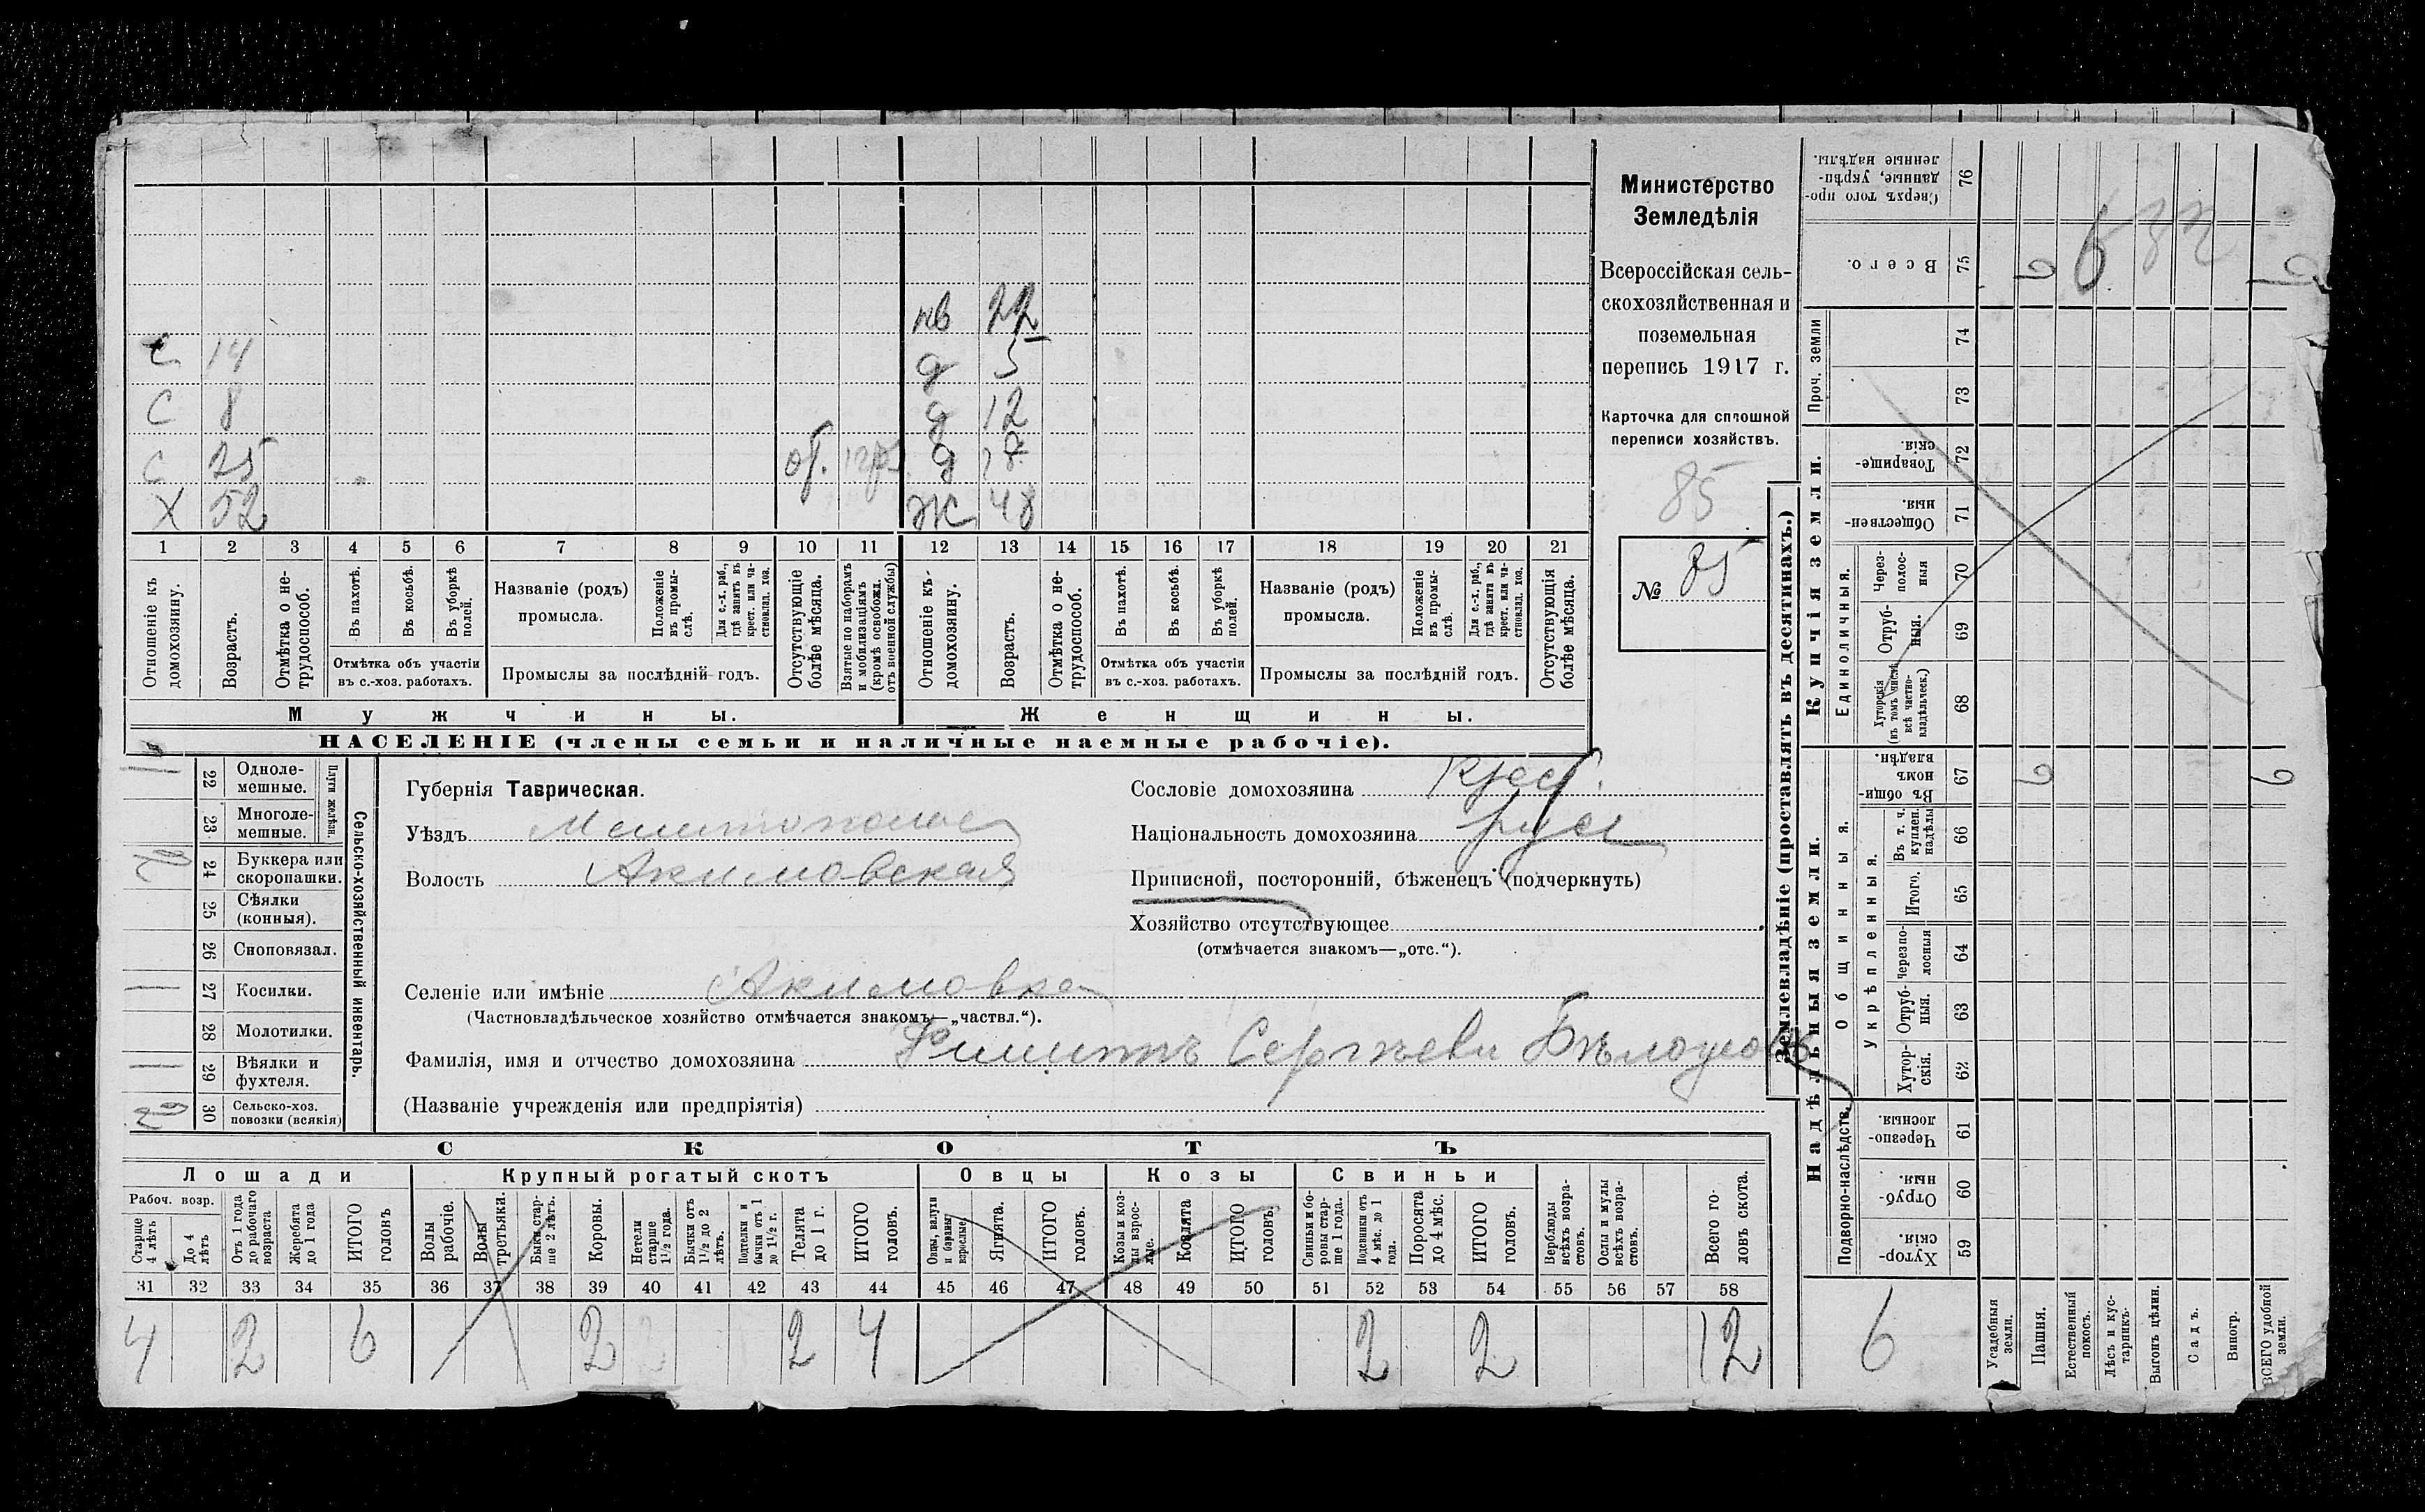 Министерство
Земледѣлія
Всероссійская сель-
скохозяйственная и
поземельная
перепись 1917 г.
Карточка для сплошной
переписи хозяйствъ.
85
№ 85
нв 22
С 14 д 5
С 8 д 12
С 25 д
Х 52 Ж 48
1 2 3 4 5 6 7 8 9 10 11 12 13 14 15 16 17 18 19 20 21
Отношеніе къ домохозяину.
Возрастъ.
Отмѣтка о не-трудоспособ.
Въ пахотѣ.
Въ косьбѣ.
Въ уборкѣ полей.
Отмѣтка объ участіи
въ с.-хоз. работахъ.
Названіе (родъ)
промысла.
Положеніе въ промы-слѣ.
Для с.-х. раб., гдѣ занятъ въ крест. или ча-стновлад. хоз.
Промыслы за послѣдній годъ.
Отсутствующіе болѣе мѣсяца.
Взятые по наборамъ и мобилизаціямъ (кромѣ освобожд. отъ военной службы)
Отношеніе къ-домохозяину.
Возрастъ.
Отмѣтка о не-трудоспособ.
Въ пахотѣ.
Въ косьбѣ.
Въ уборкѣ полей.
Отмѣтка объ участіи
въ с.-хоз. работахъ.
Названіе (родъ)
промысла.
Положеніе въ промы-слѣ.
Для с.-х. раб., гдѣ занята въ крест. или ча-стновлад. хоз.
Промыслы за послѣдній годъ.
Отсутствующія болѣе мѣсяца.
Мужчины. Женщины.
НАСЕЛЕНІЕ (члены семьи и наличные наемные рабочіе).
Сельско-хозяйственный инвентарь.
Плуги желѣзн.
22 Одноле-мешные.
23 Многоле-мешные.
24 Буккера или скоропашки.
25 Сѣялки (конныя).
26 Сноповязал.
27 Косилки.
28 Молотилки.
29 Вѣялки и фухтеля.
2 30 Сельско-хоз. повозки (всякія)
Губернія Таврическая.
Уѣздъ Мелитопольс
Волость Акимовская
Селеніе или имѣніе Акимовка
(Частновладѣльческое хозяйство отмѣчается знакомъ—„частвл.“).
Фамилія, имя и отчество домохозяина Филиппъ Сергѣевъ Бѣлоусовъ
(Названіе учрежденія или предпріятія)
Сословіе домохозяина Крест.
Національность домохозяина русс
Приписной, посторонній, бѣженецъ (подчеркнуть)
Хозяйство отсутствующее
(отмѣчается знакомъ—„отс.“).
СКОТЪ
Лошади Крупный рогатый скотъ Овцы Козы Свиньи
Рабоч. возр.
Старше 4 лѣтъ
До 4 лѣтъ
Отъ 1 года до рабочаго возраста
Жеребята до 1 года
ИТОГО головъ
Волы рабочіе.
Волы третьяки.
Быки стар-ше 2 лѣтъ.
Коровы.
Нетели старше 1½ года.
Бычки отъ 1½ до 2 лѣтъ.
Подтелки и бычки отъ 1 до 1½ г.
Телята до 1 г.
ИТОГО головъ.
Овцы, валухи и бараны взрослые.
Ягнята.
ИТОГО головъ.
Козы и коз-лы взрос-лые.
Козлята
ИТОГО головъ.
Свиньи и бо-ровы стар-ше 1 года.
Подсвинки отъ 4 мѣс. до 1 года.
Поросята до 4 мѣс.
ИТОГО головъ.
Верблюды всѣхъ возра-стовъ.
Ослы и мулы всѣхъ возра-стовъ.
Всего го-ловъ скота.
31 32 33 34 35 36 37 38 39 40 41 42 43 44 45 46 47 48 49 50 51 52 53 54 55 56 57 58
4 2 6 2 2 4 2 2 12
Землевладѣніе (проставлять въ десятинахъ.)
Надѣльныя земли.
Купчія земли.
Проч. земли
Подворно-наслѣдств.
Общинныя.
Укрѣпленныя.
Единоличныя.
Сверхъ того про-данные, укрѣп-ленные надѣлы. 76
Всего. 75
74
73
Товарище-скія. 72
Обществен-ныя. 71
Через-полос-ныя 70
Отруб-ныя. 69
Хуторскія (въ томъ числѣ всѣ частно-владѣльческ.) 68
Въ общи-номъ владѣн. 67
Въ т. ч. куплен. надѣлы 66
Итого. 65
Черезпо-лосныя 64
Отруб-ныя. 63
Хутор-скія. 62
Черезпо-лосныя. 61
Отруб-ныя. 60
Хутор-скія. 59
6
Усадебныя земли.
Пашня.
Естественный покосъ.
Лѣсъ и кус-тарникъ.
Выгонъ цѣлин.
Садъ.
Виногр.
ВСЕГО удобной земли.